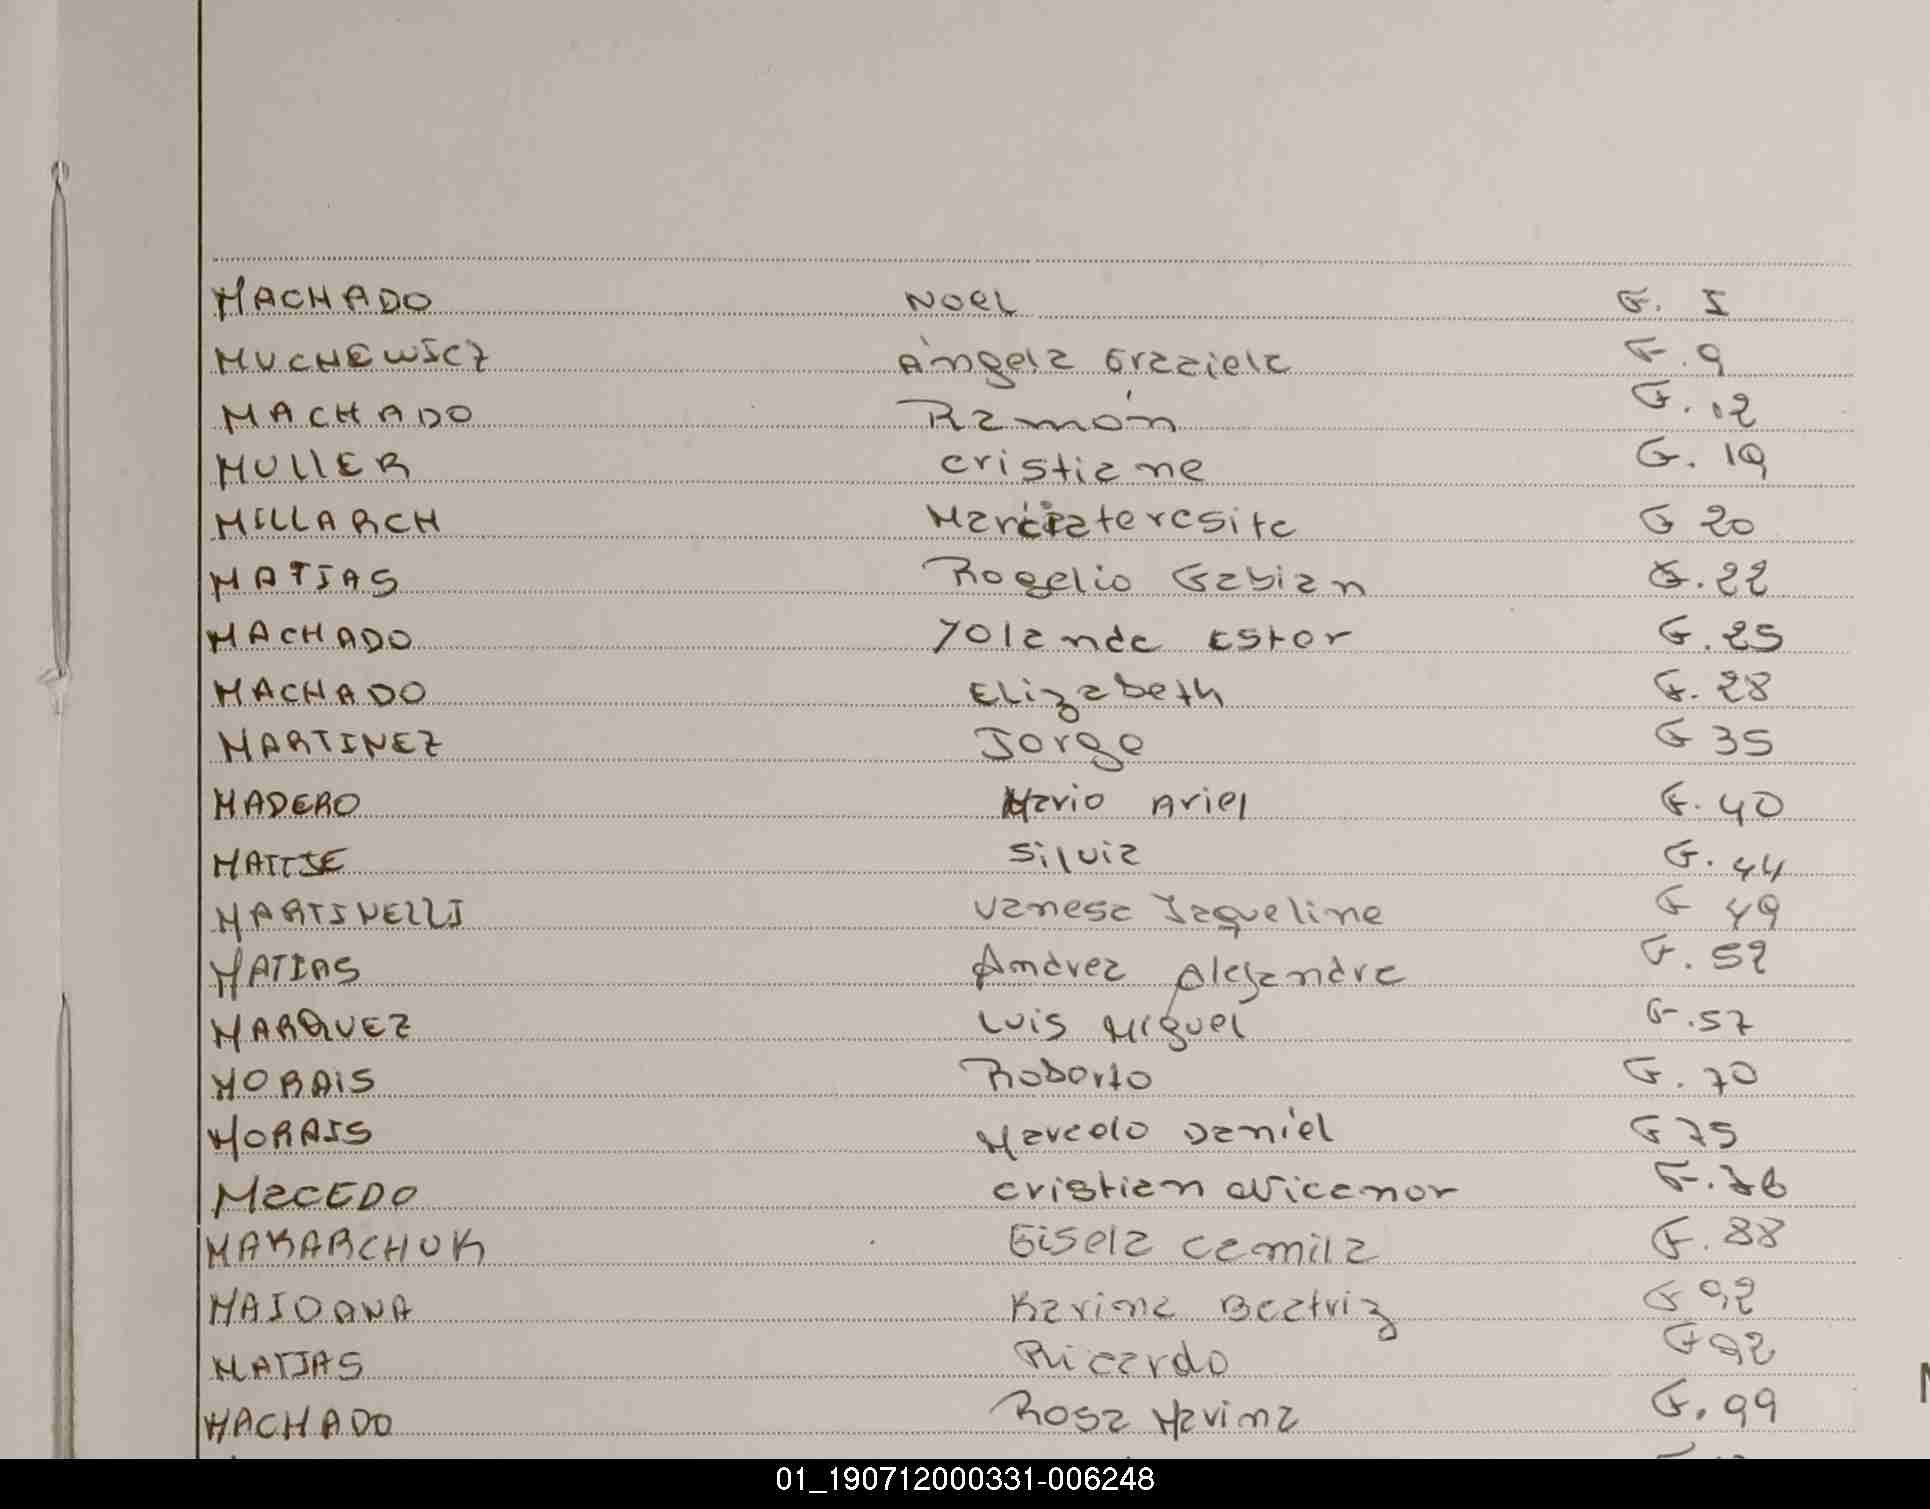 MACHADO Noel G. I
MUCHEWICZ Ángela Graziela G. 9
MACHADO Ramón G. 12
MULLER Cristiane G. 19
MILLARCH María teresita G 20
MATIAS Rogelio Gabian G. 22
MACHADO Yolanda Ester G. 25
MACHADO Elizabeth G. 28
MARTINEZ Jorge G 35
MADERO Mario Ariel G. 40
MATTJE Silvia G. 44
MARTINELLI Vanesa Jaqueline G 49
MATIAS Andrea Alejandra G. 52
MARQUEZ Luis Miguel G. 57
MORAIS Roberto G. 70
MORAIS Marcelo Daniel G 75
MaCEDO Cristian Nicanor G.
MAKARCHUK Gisela Camila G. 88
MAIDANA Karina Beatriz G 92
MATIAS Ricardo G 92
MACHADO Rosa Marina G. 99
01_190712000331-006248